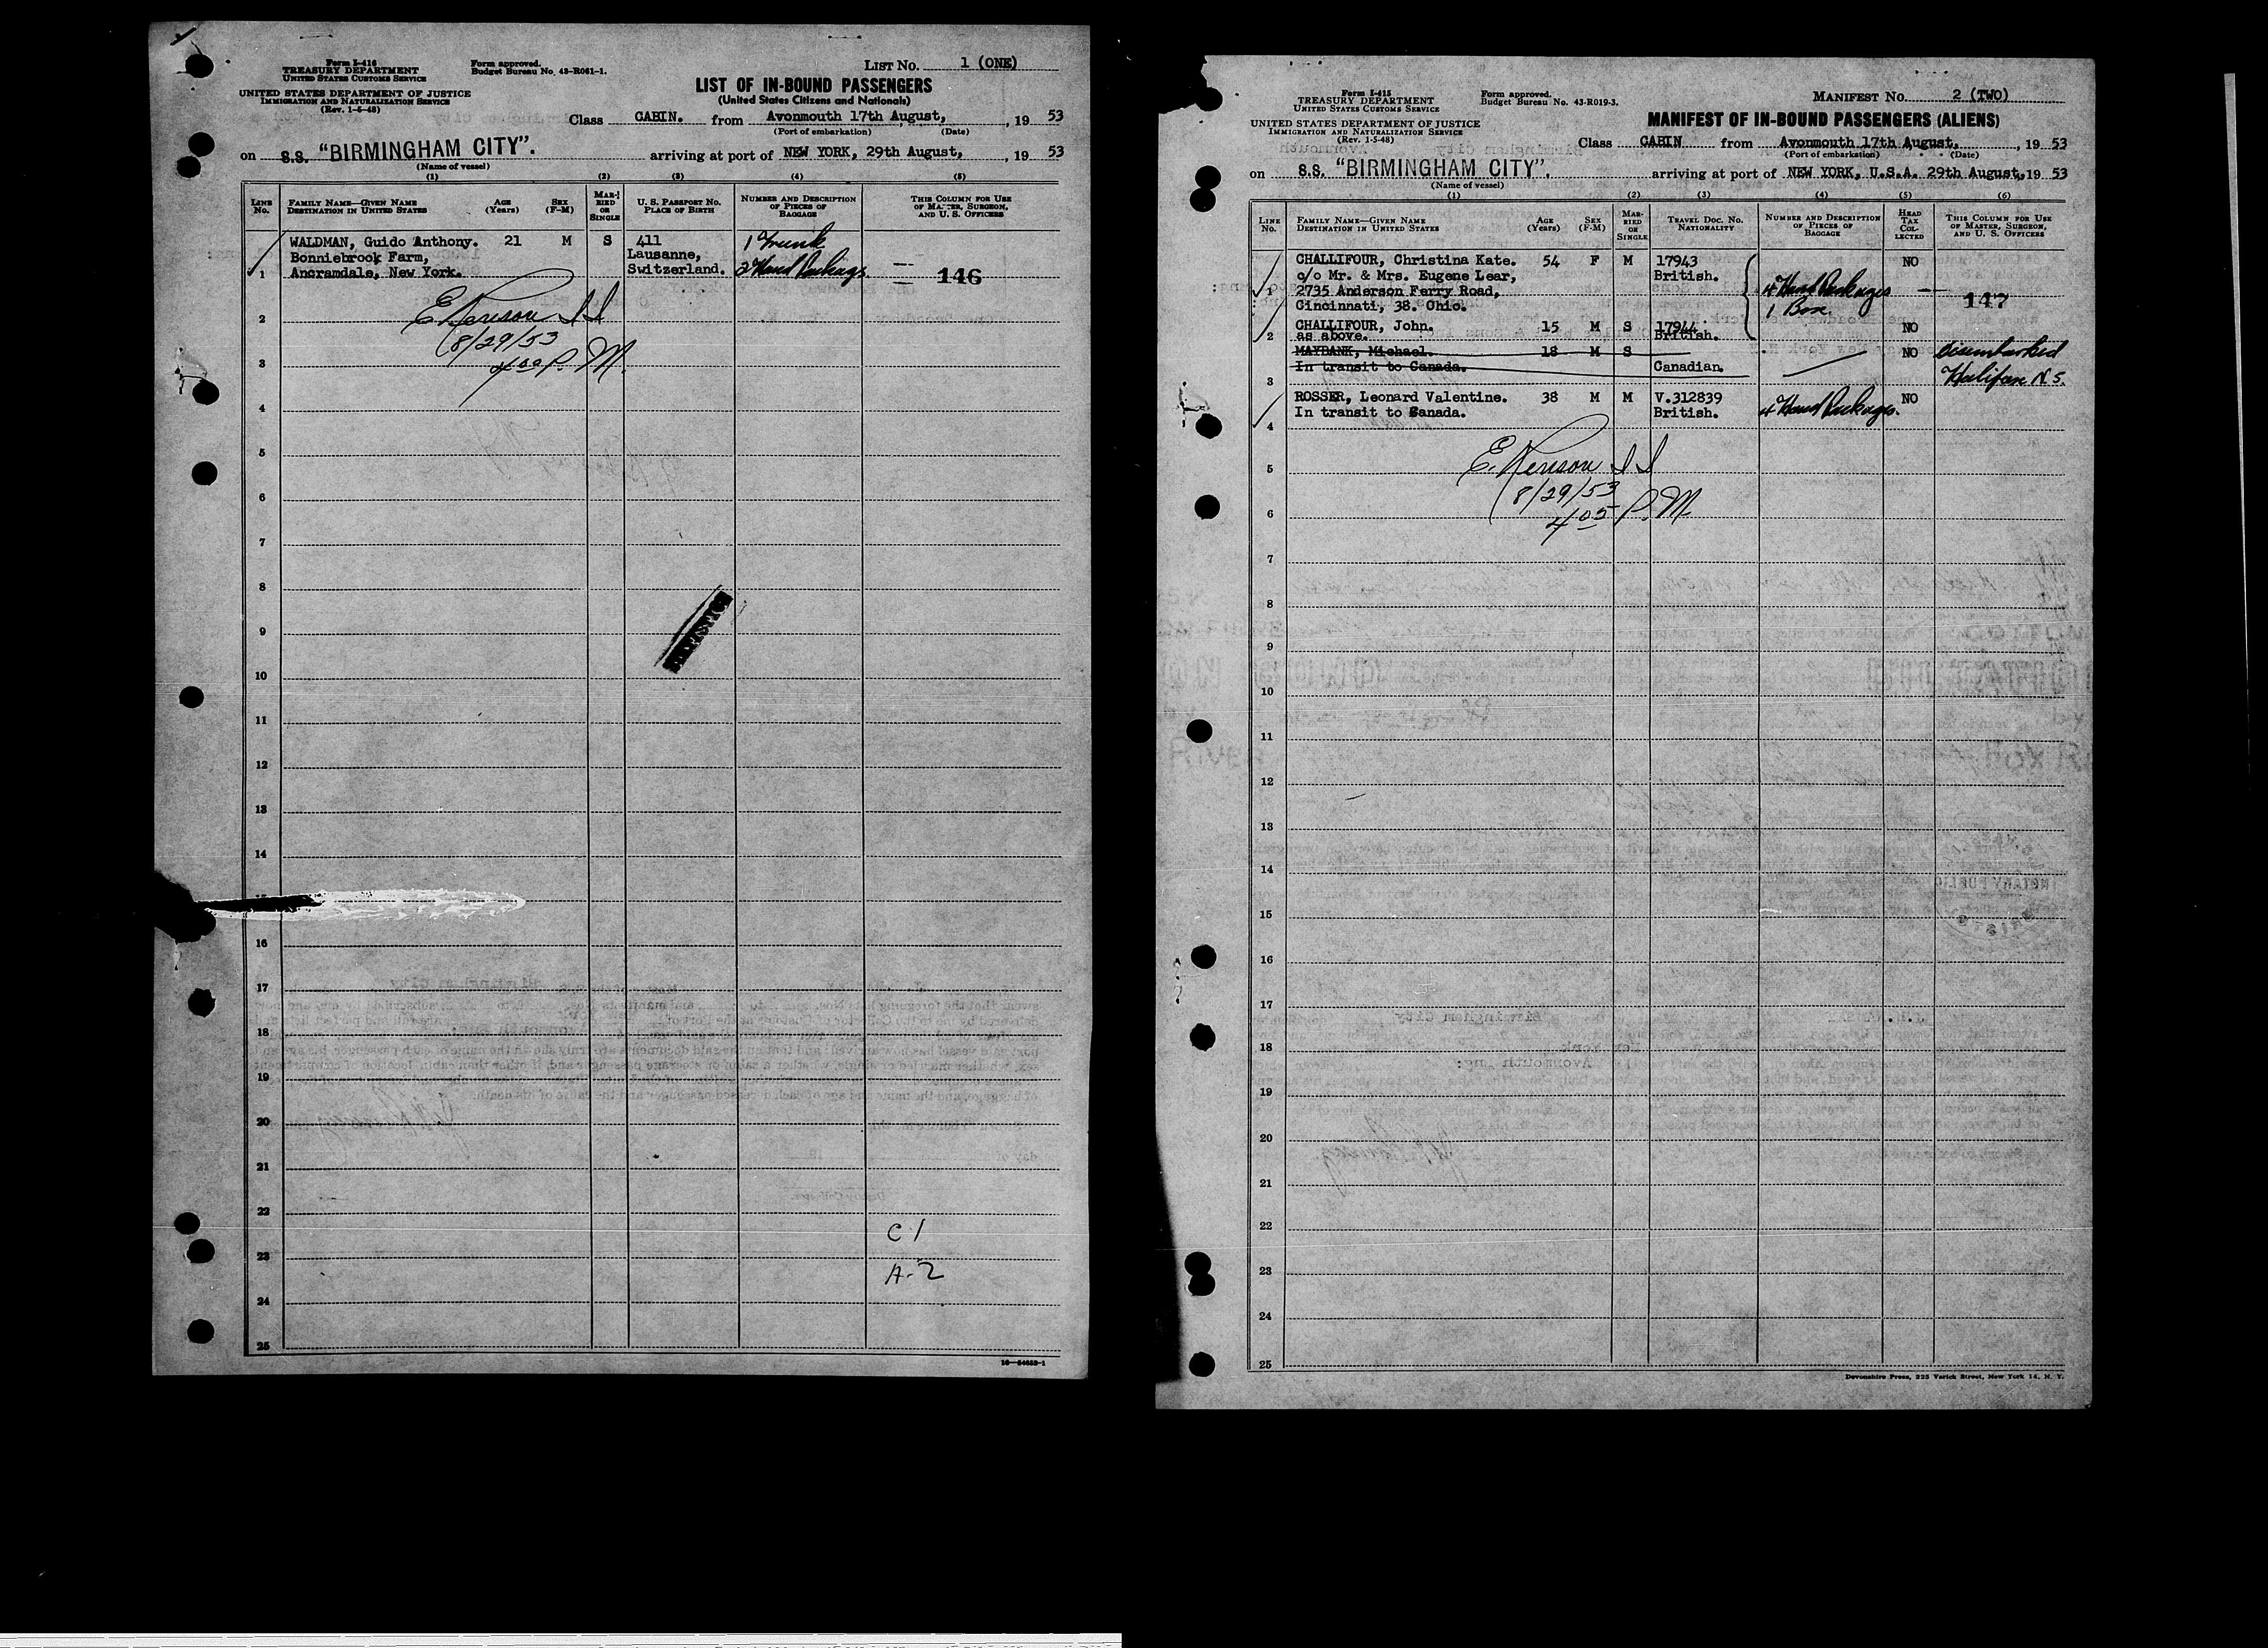 Form I-416
TREASURY DEPARTMENT
UNITED STATES CUSTOMS SERVICE
UNITED STATES DEPARTMENT OF JUSTICE
IMMIGRATION AND NATURALIZATION SERVICE
(Rev. 1-5-48)
Form approved.
Budget Bureau No. 43-R061-1.
LIST No. 1 (ONE)
LIST OF IN-BOUND PASSENGERS
(United States Citizens and Nationals)
Class CABIN. from Avonmouth 17th August, , 19 53
(Port of embarkation) (Date)
on S.S. "BIRMINGHAM CITY". arriving at port of NEW YORK, 29th August, , 19 53
(Name of vessel)
(1) (2) (3) (4) (5)
LINE No. FAMILY NAME—GIVEN NAME DESTINATION IN UNITED STATES AGE (Years) SEX (F-M) MARRIED OR SINGLE U. S. PASSPORT NO. PLACE OF BIRTH NUMBER AND DESCRIPTION OF PIECES OF BAGGAGE THIS COLUMN FOR USE OF MASTER, SURGEON, AND U. S. OFFICERS
WALDMAN, Guido Anthony. 21 M S 411 1 Trunk
Bonniebrook Farm, Lausanne,
1 Ancramdale, New York. Switzerland. 2 Hand Packags. 146
2
8/29/53
3
4 00 P. M.
4
5
6
7
8
9
10
11
12
13
14
15
16
17
18
19
20
21
22
C 1
23
A-2
24
25
16—54652-1
Form I-415
TREASURY DEPARTMENT
UNITED STATES CUSTOMS SERVICE
UNITED STATES DEPARTMENT OF JUSTICE
IMMIGRATION AND NATURALIZATION SERVICE
(Rev. 1-5-48)
Form approved.
Budget Bureau No. 43-R019-3.
MANIFEST No. 2 (TWO)
MANIFEST OF IN-BOUND PASSENGERS (ALIENS)
Class CABIN from Avonmouth 17th August, , 19 53
(Port of embarkation) (Date)
on S.S. "BIRMINGHAM CITY". arriving at port of NEW YORK, U.S.A. 29th August, 19 53
(Name of vessel)
(1) (2) (3) (4) (5) (6)
LINE No. FAMILY NAME—GIVEN NAME DESTINATION IN UNITED STATES AGE (Years) SEX (F-M) MARRIED OR SINGLE TRAVEL DOC. NO. NATIONALITY NUMBER AND DESCRIPTION OF PIECES OF BAGGAGE HEAD TAX COLLECTED THIS COLUMN FOR USE OF MASTER, SURGEON, AND U. S. OFFICERS
CHALLIFOUR, Christina Kate. 54 F M 17943 NO
c/o Mr. & Mrs. Eugene Lear, British.
1 2735 Anderson Ferry Road, 4 Hand Packages 147
Cincinnati, 38. Ohio. 1 Box.
CHALLIFOUR, John. 15 M S 17944 NO
2 as above. British.
MAYBANK, Michael. 18 M S NO Disembarked
In transit to Canada. Canadian.
3 Halifax N.S.
ROSSER, Leonard Valentine. 38 M M V.312839 NO
In transit to Canada. British. 4 Hand Packages.
4
5
8/29/53
6
4 05 P. M.
7
8
9
10
11
12
13
14
15
16
17
18
19
20
21
22
23
24
25
Devonshire Press, 225 Varick Street, New York 14, N. Y.